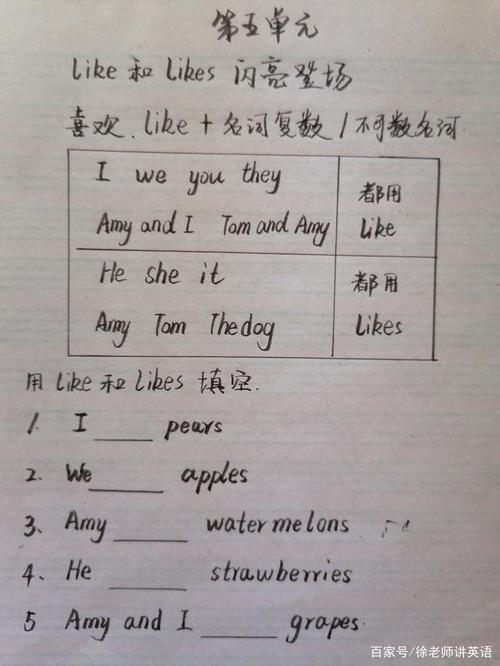 第五单元
like 和 likes 闪亮登场
喜欢、like + 名词复数 / 不可数名词.
I we you they
都用
Amy and I Tom and Amy
like
He she it
都用
Amy Tom The dog
likes
用 like 和 likes 填空.
1. I ____ pears
2. We ____ apples
3、 Amy ____ watermelons
4、 He ____ strawberries
5 Amy and I ____ grapes.
百家号/徐老师讲英语